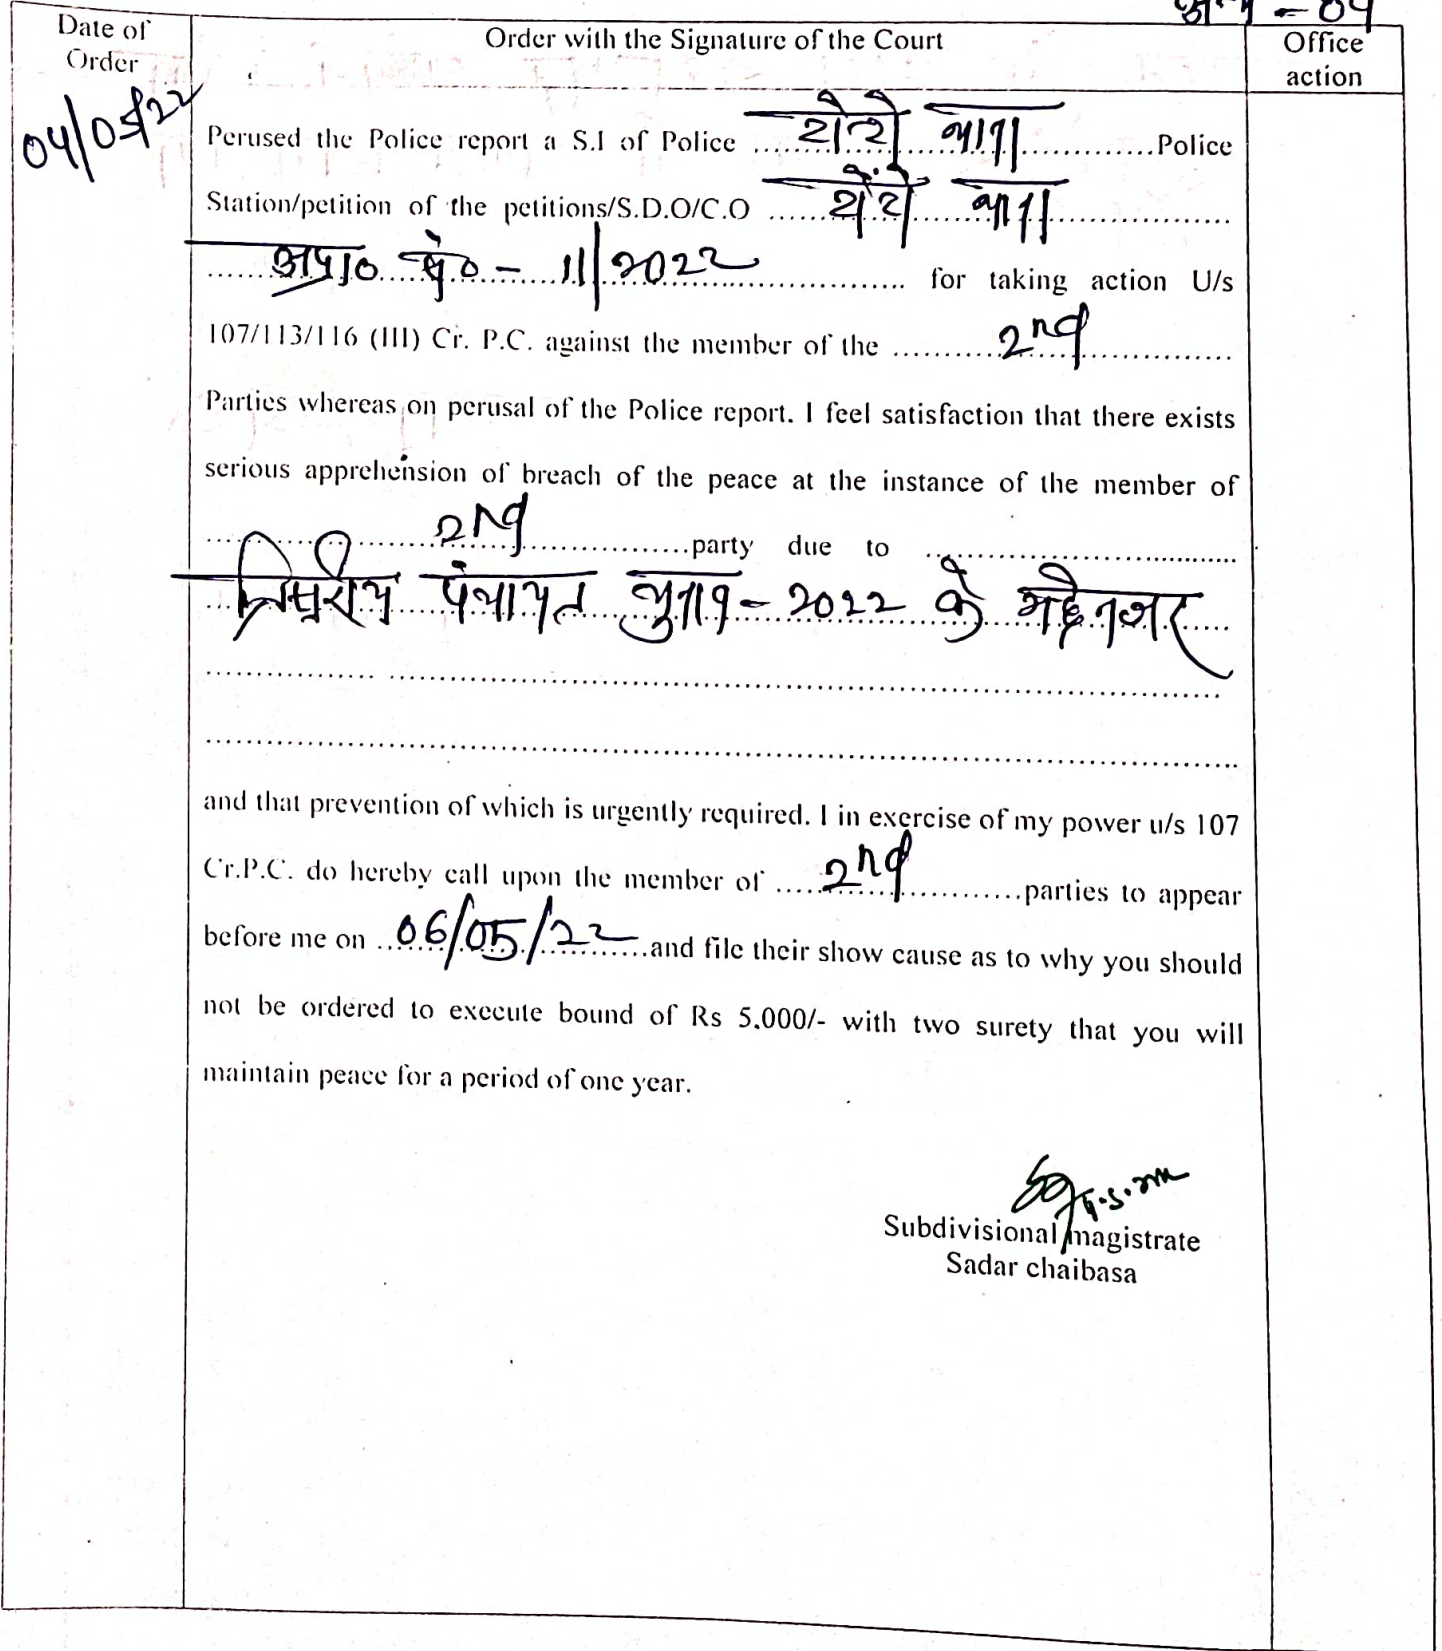 - 04
Date of
Order
Order with the Signature of the Court
Office
action
04/05/22
Perused the Police report a S.I of Police .......... थाना ..........Police
Station/petition of the petitions/S.D.O/C.O .......... थाना ..........
..........अप्रा० सं०- 11/2022.......... for taking action U/s
107/113/116 (III) Cr. P.C. against the member of the ..........2nd..........
Parties whereas on perusal of the Police report. I feel satisfaction that there exists
serious apprehension of breach of the peace at the instance of the member of
..........2nd..........party due to ..........
त्रिस्तरीय पंचायत चुनाव- 2022 के मद्देनजर
and that prevention of which is urgently required. I in exercise of my power u/s 107
Cr.P.C. do hereby call upon the member of ..........2nd..........parties to appear
before me on ..06/05/22..........and file their show cause as to why you should
not be ordered to execute bound of Rs 5,000/- with two surety that you will
maintain peace for a period of one year.
Subdivisional magistrate
Sadar chaibasa